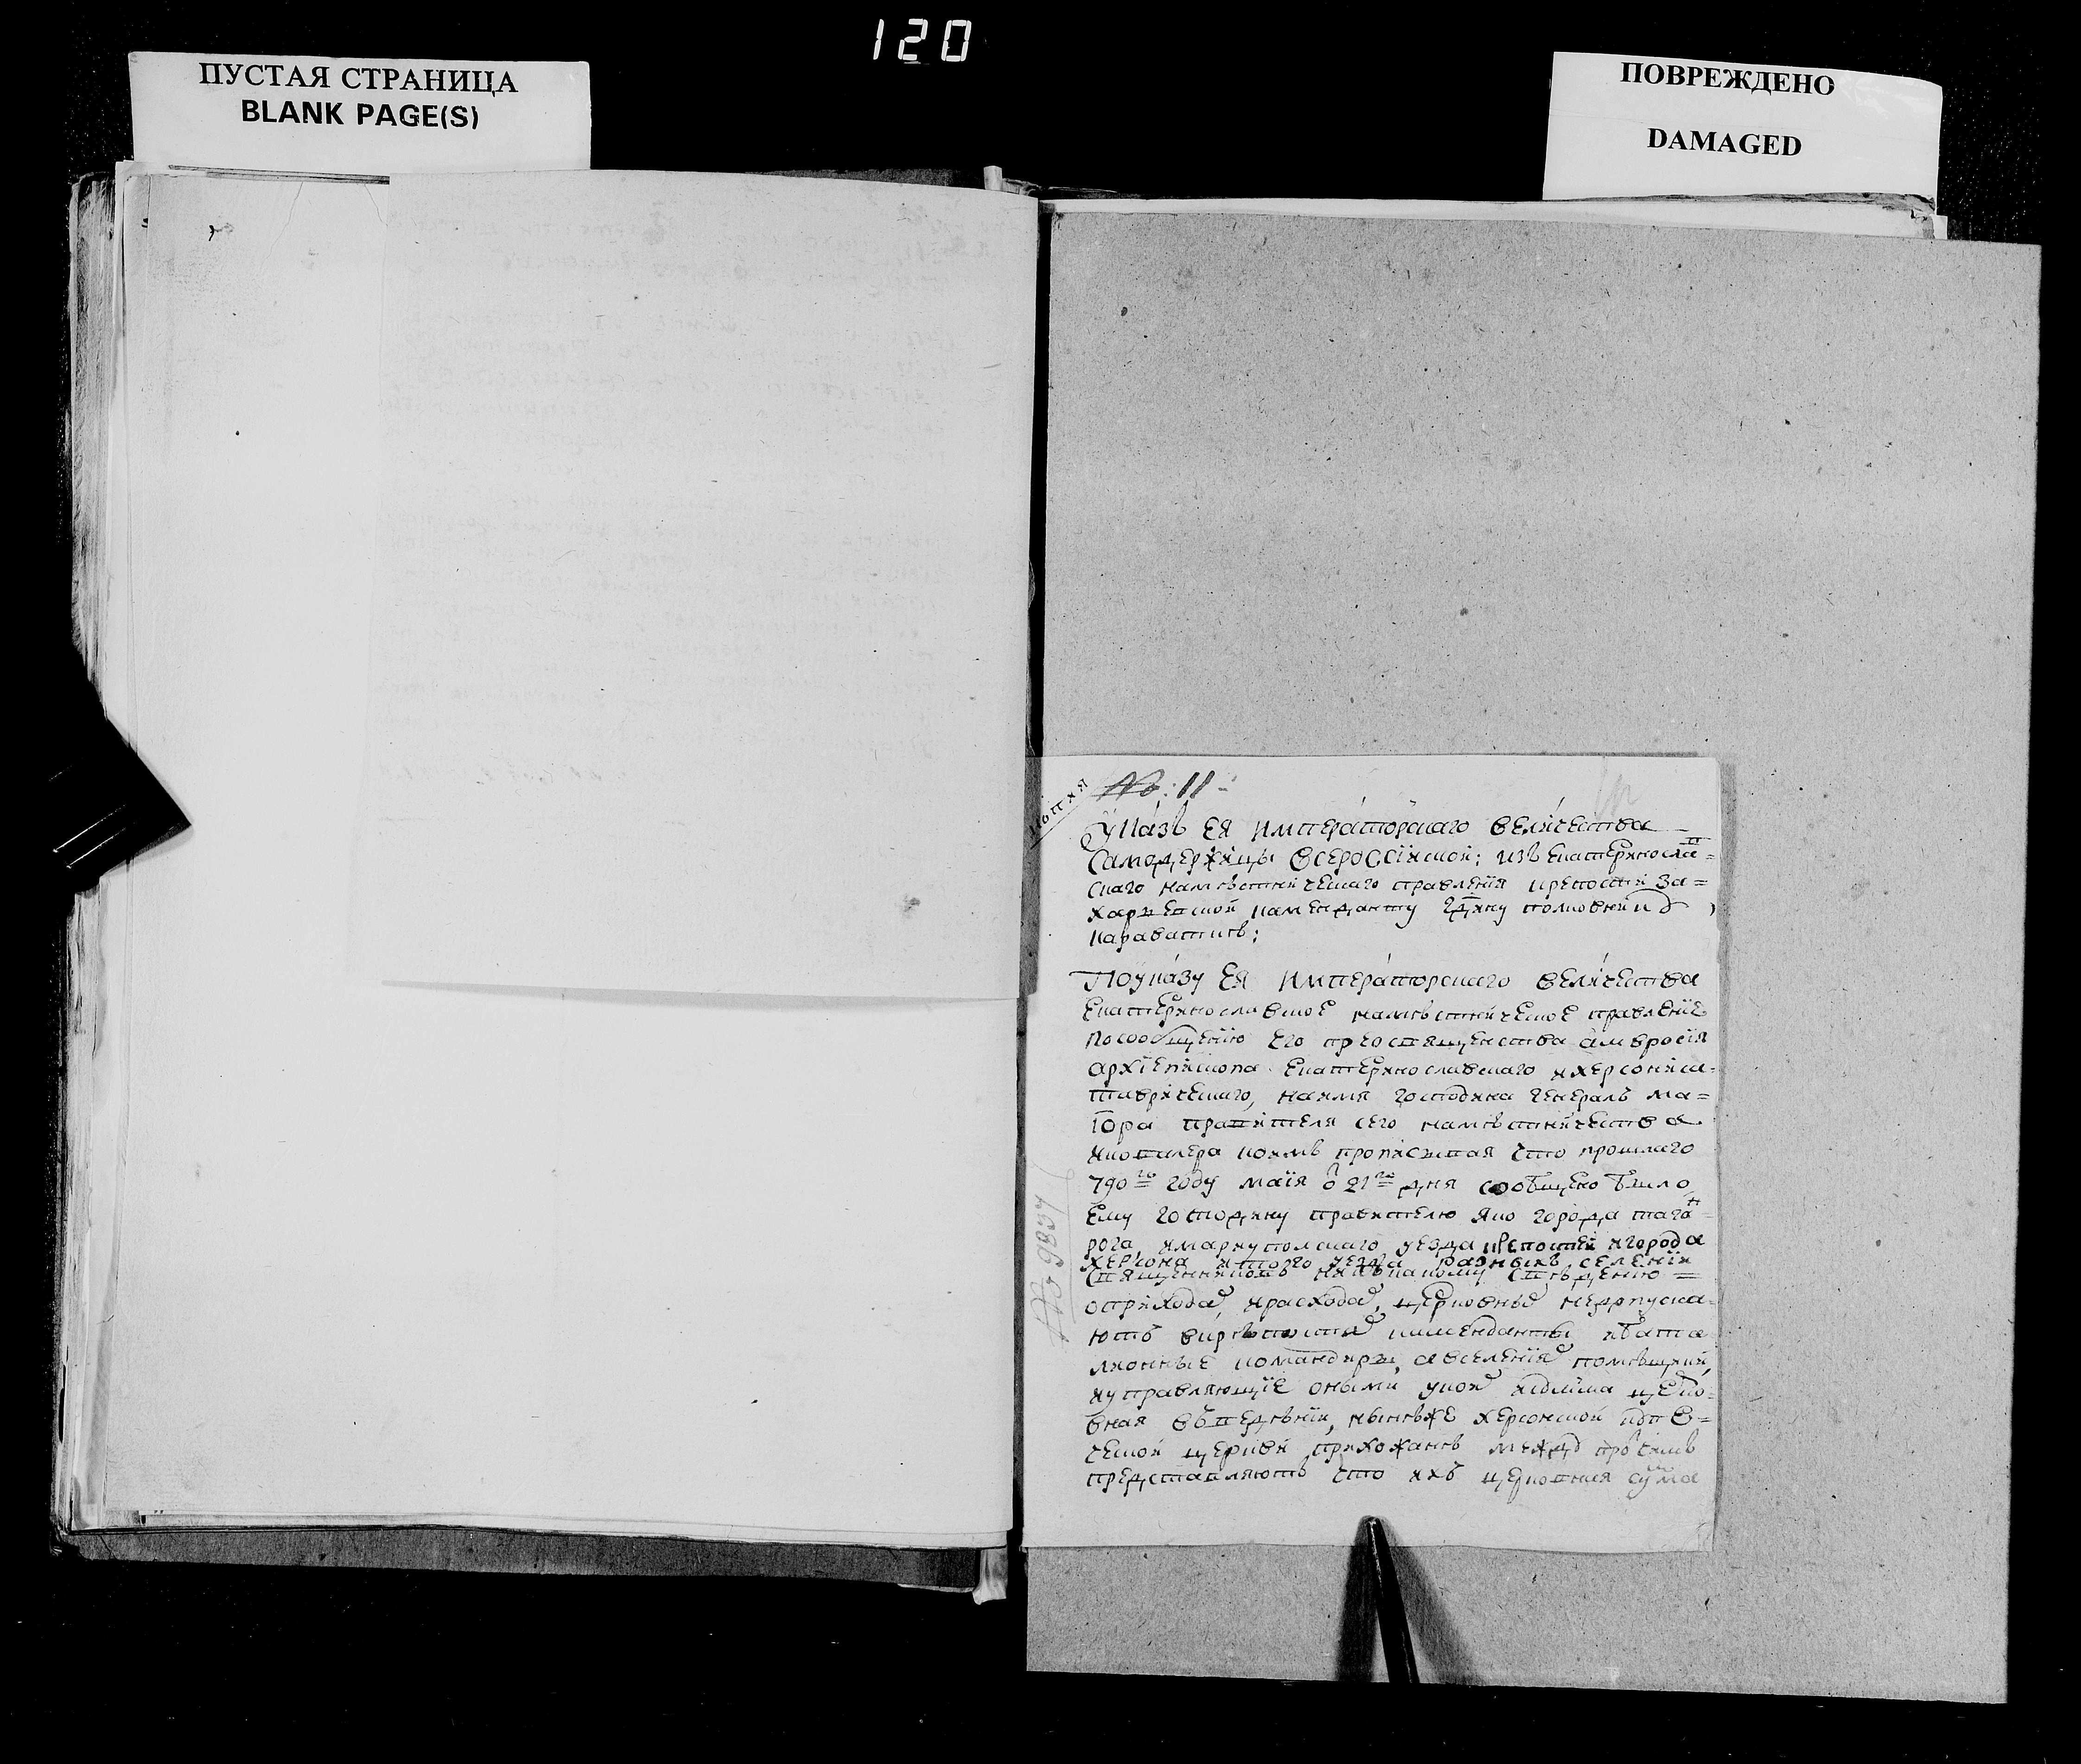 120
ПУСТАЯ СТРАНИЦА
BLANK PAGE(S)
ПОВРЕЖДЕНО
DAMAGED
копия
№: 11
Указъ Ея Императорскаго величества
Самодержицы Всероссійской: изъ Екатеринослав=
скаго намѣстническаго правленія крепости За=
харьевской камендантy Гдину полковнику
Караватикѣ:
Поуказу Ея Императорскаго величества
Екатеринославское намѣстническое правленіе
посообщенію Его преосвященства амвросія
архіепископа Екатеринославскаго ихерсониса=
таврическаго, наимя господина генералъ ма=
іора правителя сего намѣстничества
икавалера коимъ прописывая что прошлаго
790го году маія 21го дня сообщено было
Ему господину правителю яко города таган
рога, имариуполскаго уезда крепостей игорода
Херсона итого уезда разныхъ селеній
священниковъ никъ какому свѣдению =
оприходах, ирасходах, церковных недопуска=
ютъ вкрѣпостях камендантъ ибата
лионные командиры, авселенiях помѣщики,
иуправляющіе оными
вная въ ведѣніи, нынѣже херсонской
ческой церкви прихожанѣ между протчимъ
представляютъ что ихъ церковная сума